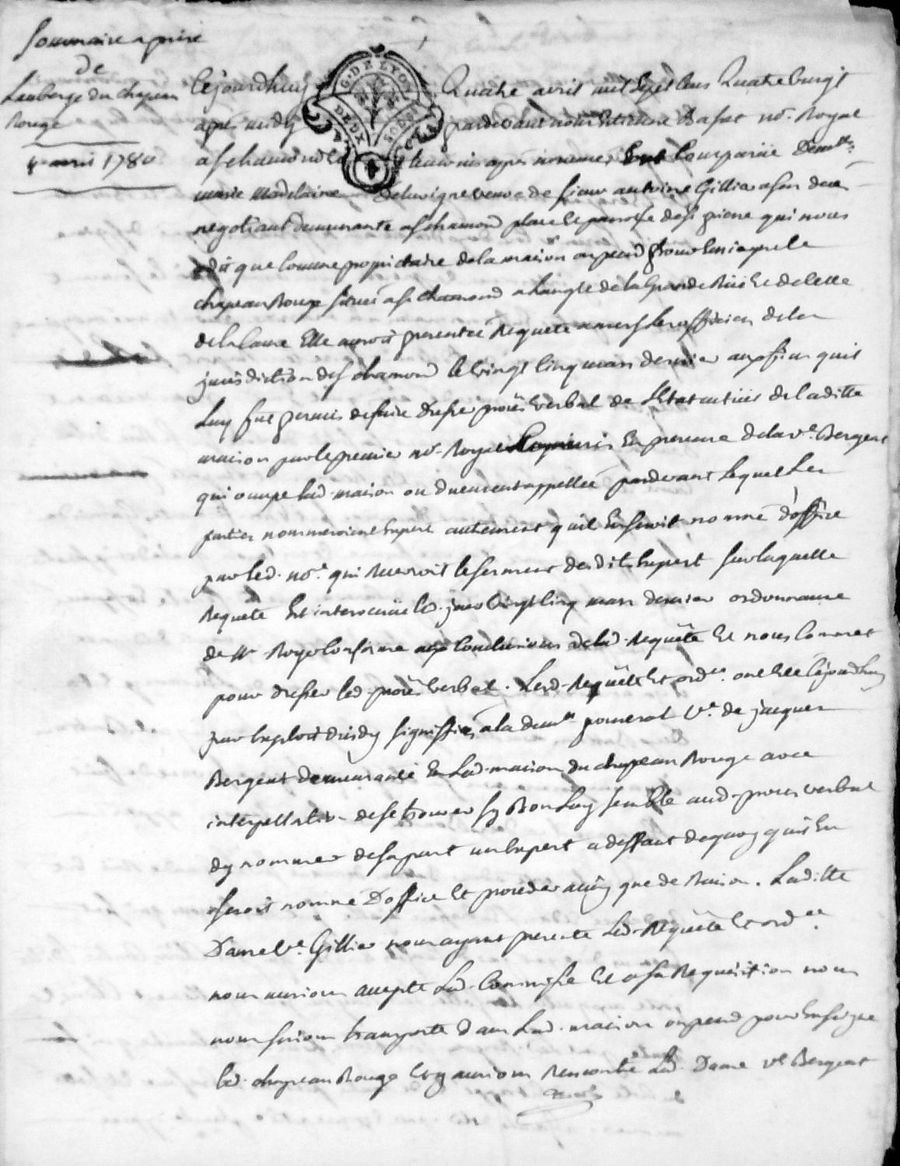 Sommaire a prise
de
Lauberge du chapeau
Rouge
4e avril 1780
G. DE LYON
DEUX SOLS
Cejourdhuy Quatre avril mil sept cens Quatre vingt
apres midy pardevant nous no.re Royal
a St chamond et temoins apres nommés comparüe Dem.lle
marie Madelaine Delavigne veuve de sieur antoine Gillier a son decès
negotiant demeurante a St chamond place et paroisse de St pierre qui nous
a dit que comme propriétaire de la maison ou pend pour Enseigne le
chapeau Rouge située a St chamond a Langle de la Grande Rüe Et de celle
de la Cure Elle auroit presenté Requete a messrs les officiers de la
jurisdiction de St chamond le vingt cinq mars dernier aux fins qu'il
Luy fut permis de faire dresser procès verbal de L'Etat de laditte
maison par le premier no.re Royal En presence de la v.e Bergeat
qui occupe lad. maison ou duement appellée pardevant lequel Les
parties nommeroient Expert autrement quil En seroit nommé d'office
par led. no.re qui Recevroit le serment desdits Expert sur laquelle
Requete Est intervenüe led. jour vingt cinq mars dernier ordonnance
de Mr Royer conforme aux Conclusions de lad. Requête Et nous Commet
pour dresser led. procès verbal. Lesd. Requête Et ord.ce ont Eté cejourdhuy
par Exploit dudy signiffiés a la dem.lle v.e de jacques
Bergeat demeurante En lad. maison du chapeau Rouge avec
interpellation de se trouver sy Bon Luy semble aud. proces verbal
dy nommer de sa part un Expert a deffaut de quoy quil En
seroit nommé D'office Et procedé ainsy que de Raison. Laditte
Dame v.e Gillier nous ayant presenté Lad. Requête Et ord.ce
nous aurions accepté Lad. Commise Et a sa Requisition nous
nous serions transporté dans Lad. maison ou pend pour Enseigne
led. chapeau Rouge Et y aurions Rencontré Lad. Dame v.e Bergeat